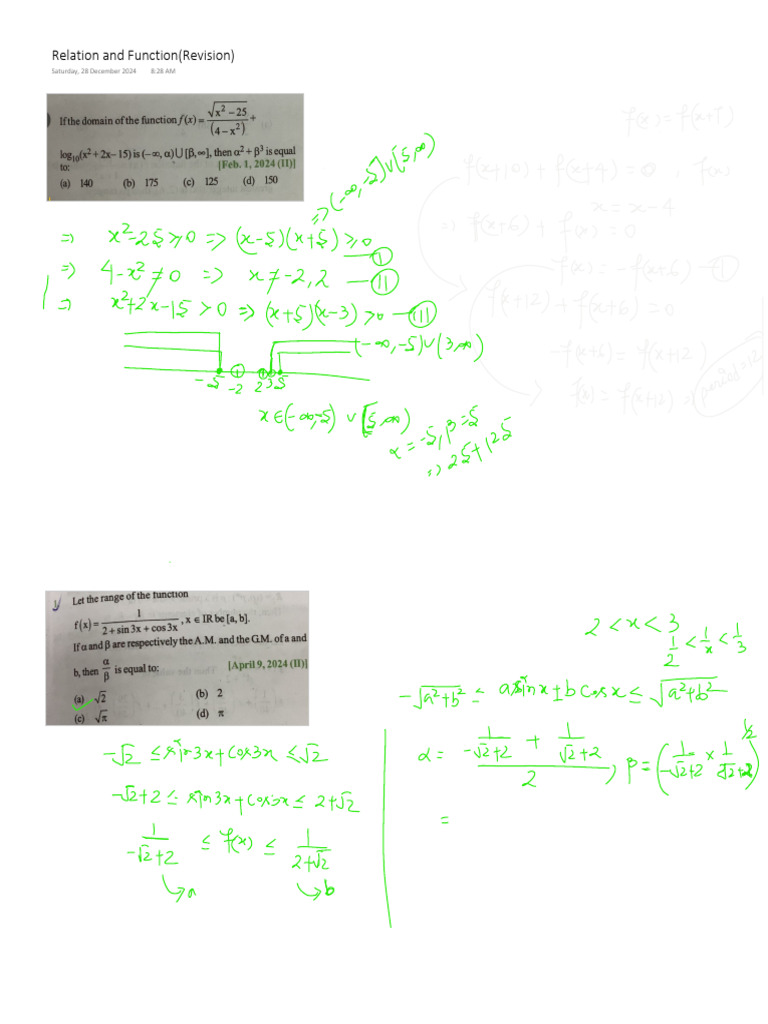 Relation and Function(Revision)
Saturday, 28 December 2024 8:28 AM
If the domain of the function f(x) = √(x² – 25)/(4 – x²) +
log₁₀(x² + 2x – 15) is (–∞, α) ∪ [β, ∞], then α² + β³ is equal
to: [Feb. 1, 2024 (II)]
(a) 140 (b) 175 (c) 125 (d) 150
f(x) = f(x+T)
f(x+10) + f(x+4) = 0 , f(x)
x = x-4
⇒ f(x+6) + f(x) = 0
f(x) = -f(x+6) - ①
f(x+12) - f(x+6) = 0
-f(x+6) = f(x+12)
f(x) = f(x+12) ⇒ period = 12
⇒ (-∞, -5] ∪ [5, ∞)
⇒ x² - 25 ≥ 0 ⇒ (x-5)(x+5) ≥ 0 - Ⓘ
⇒ 4 - x² ≠ 0 ⇒ x ≠ -2, 2 - ⓘⓘ
⇒ x² + 2x - 15 > 0 ⇒ (x+5)(x-3) > 0 - ⓘⓘⓘ
(-∞, -5) ∪ (3, ∞)
-5 -2 2 3 5
x ∈ (-∞, -5) ∪ [5, ∞)
α = -5, β = 5
⇒ 25 + 125
Let the range of the function
f(x) = 1/(2 + sin 3x + cos 3x), x ∈ IR be [a, b].
If α and β are respectively the A.M. and the G.M. of a and
b, then α/β is equal to: [April 9, 2024 (II)]
(a) √2 (b) 2
(c) √π (d) π
2 < x < 3
1/2 < 1/x < 1/3
-√(a²+b²) ≤ a sin x ± b cos x ≤ √(a²+b²)
-√2 ≤ sin3x + cos3x ≤ √2
-√2+2 ≤ sin3x + cos3x ≤ 2+√2
1/(-√2+2) ≤ f(x) ≤ 1/(2+√2)
↳ a ↳ b
α = (1/(-√2+2) + 1/(√2+2))/2 , β = (1/(-√2+2) × 1/(√2+2))^1/2
=